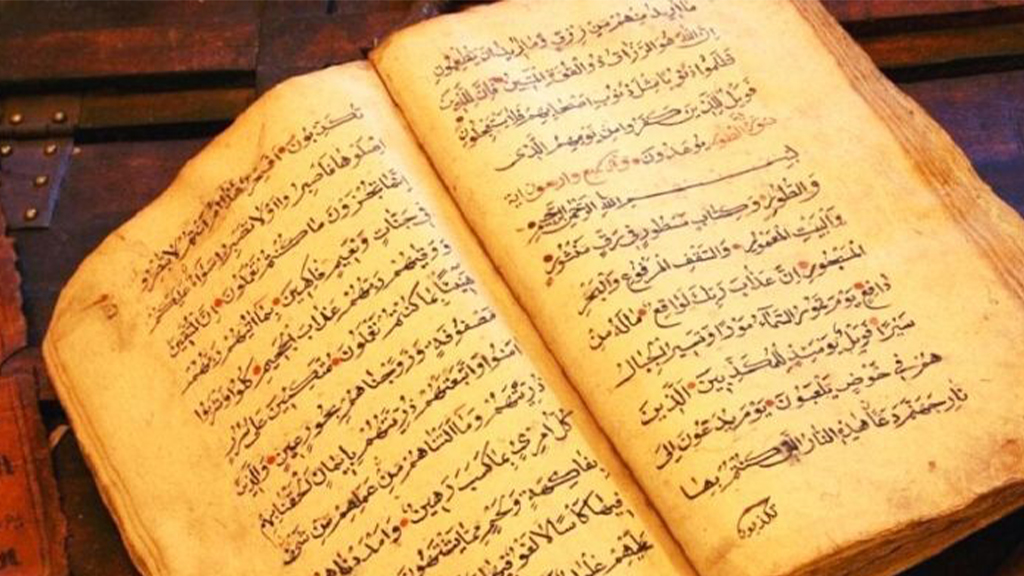 ما أريد منهم من رزق وما أريد أن يطعمون
إن الله هو الرزاق ذو القوة المتين فإن للذين
ظلموا ذنوبا مثل ذنوب أصحابهم فلا يستعجلون
فويل للذين كفروا من يومهم الذي
سورة الطور يوعدون وهي وأربعون آية
بسم الله الرحمن الرحيم
والطور وكتاب مسطور في رق منشور
والبيت المعمور والسقف المرفوع والبحر
المسجور إن عذاب ربك لواقع ماله من
دافع يوم تمور السماء مورا وتسير الجبال
سيرا فويل يومئذ للمكذبين الذين
هم في خوض يلعبون يوم يدعون إلى
نار جهنم دعا هذه النار التي كنتم بها
تكذبون
تكذبون أفسحر لا تبصرون
اصلوها فاصبروا أو لا تصبروا سواء عليكم
إنما تجزون ما كنتم تعملون إن المتقين
في جنات ونعيم فاكهين بما آتاهم ربهم
ووقاهم ربهم عذاب الجحيم كلوا واشربوا
هنيئا بما كنتم تعملون متكئين على سرر
مصفوفة وزوجناهم بحور عين والذين
آمنوا واتبعتهم ذريتهم بإيمان ألحقنا بهم
ذريتهم وما ألتناهم من عملهم من شيء
كل امرئ بما كسب رهين وأمددناهم
بفاكهة ولحم مما يشتهون
فيها كأسا لا لغو فيها
عليهم